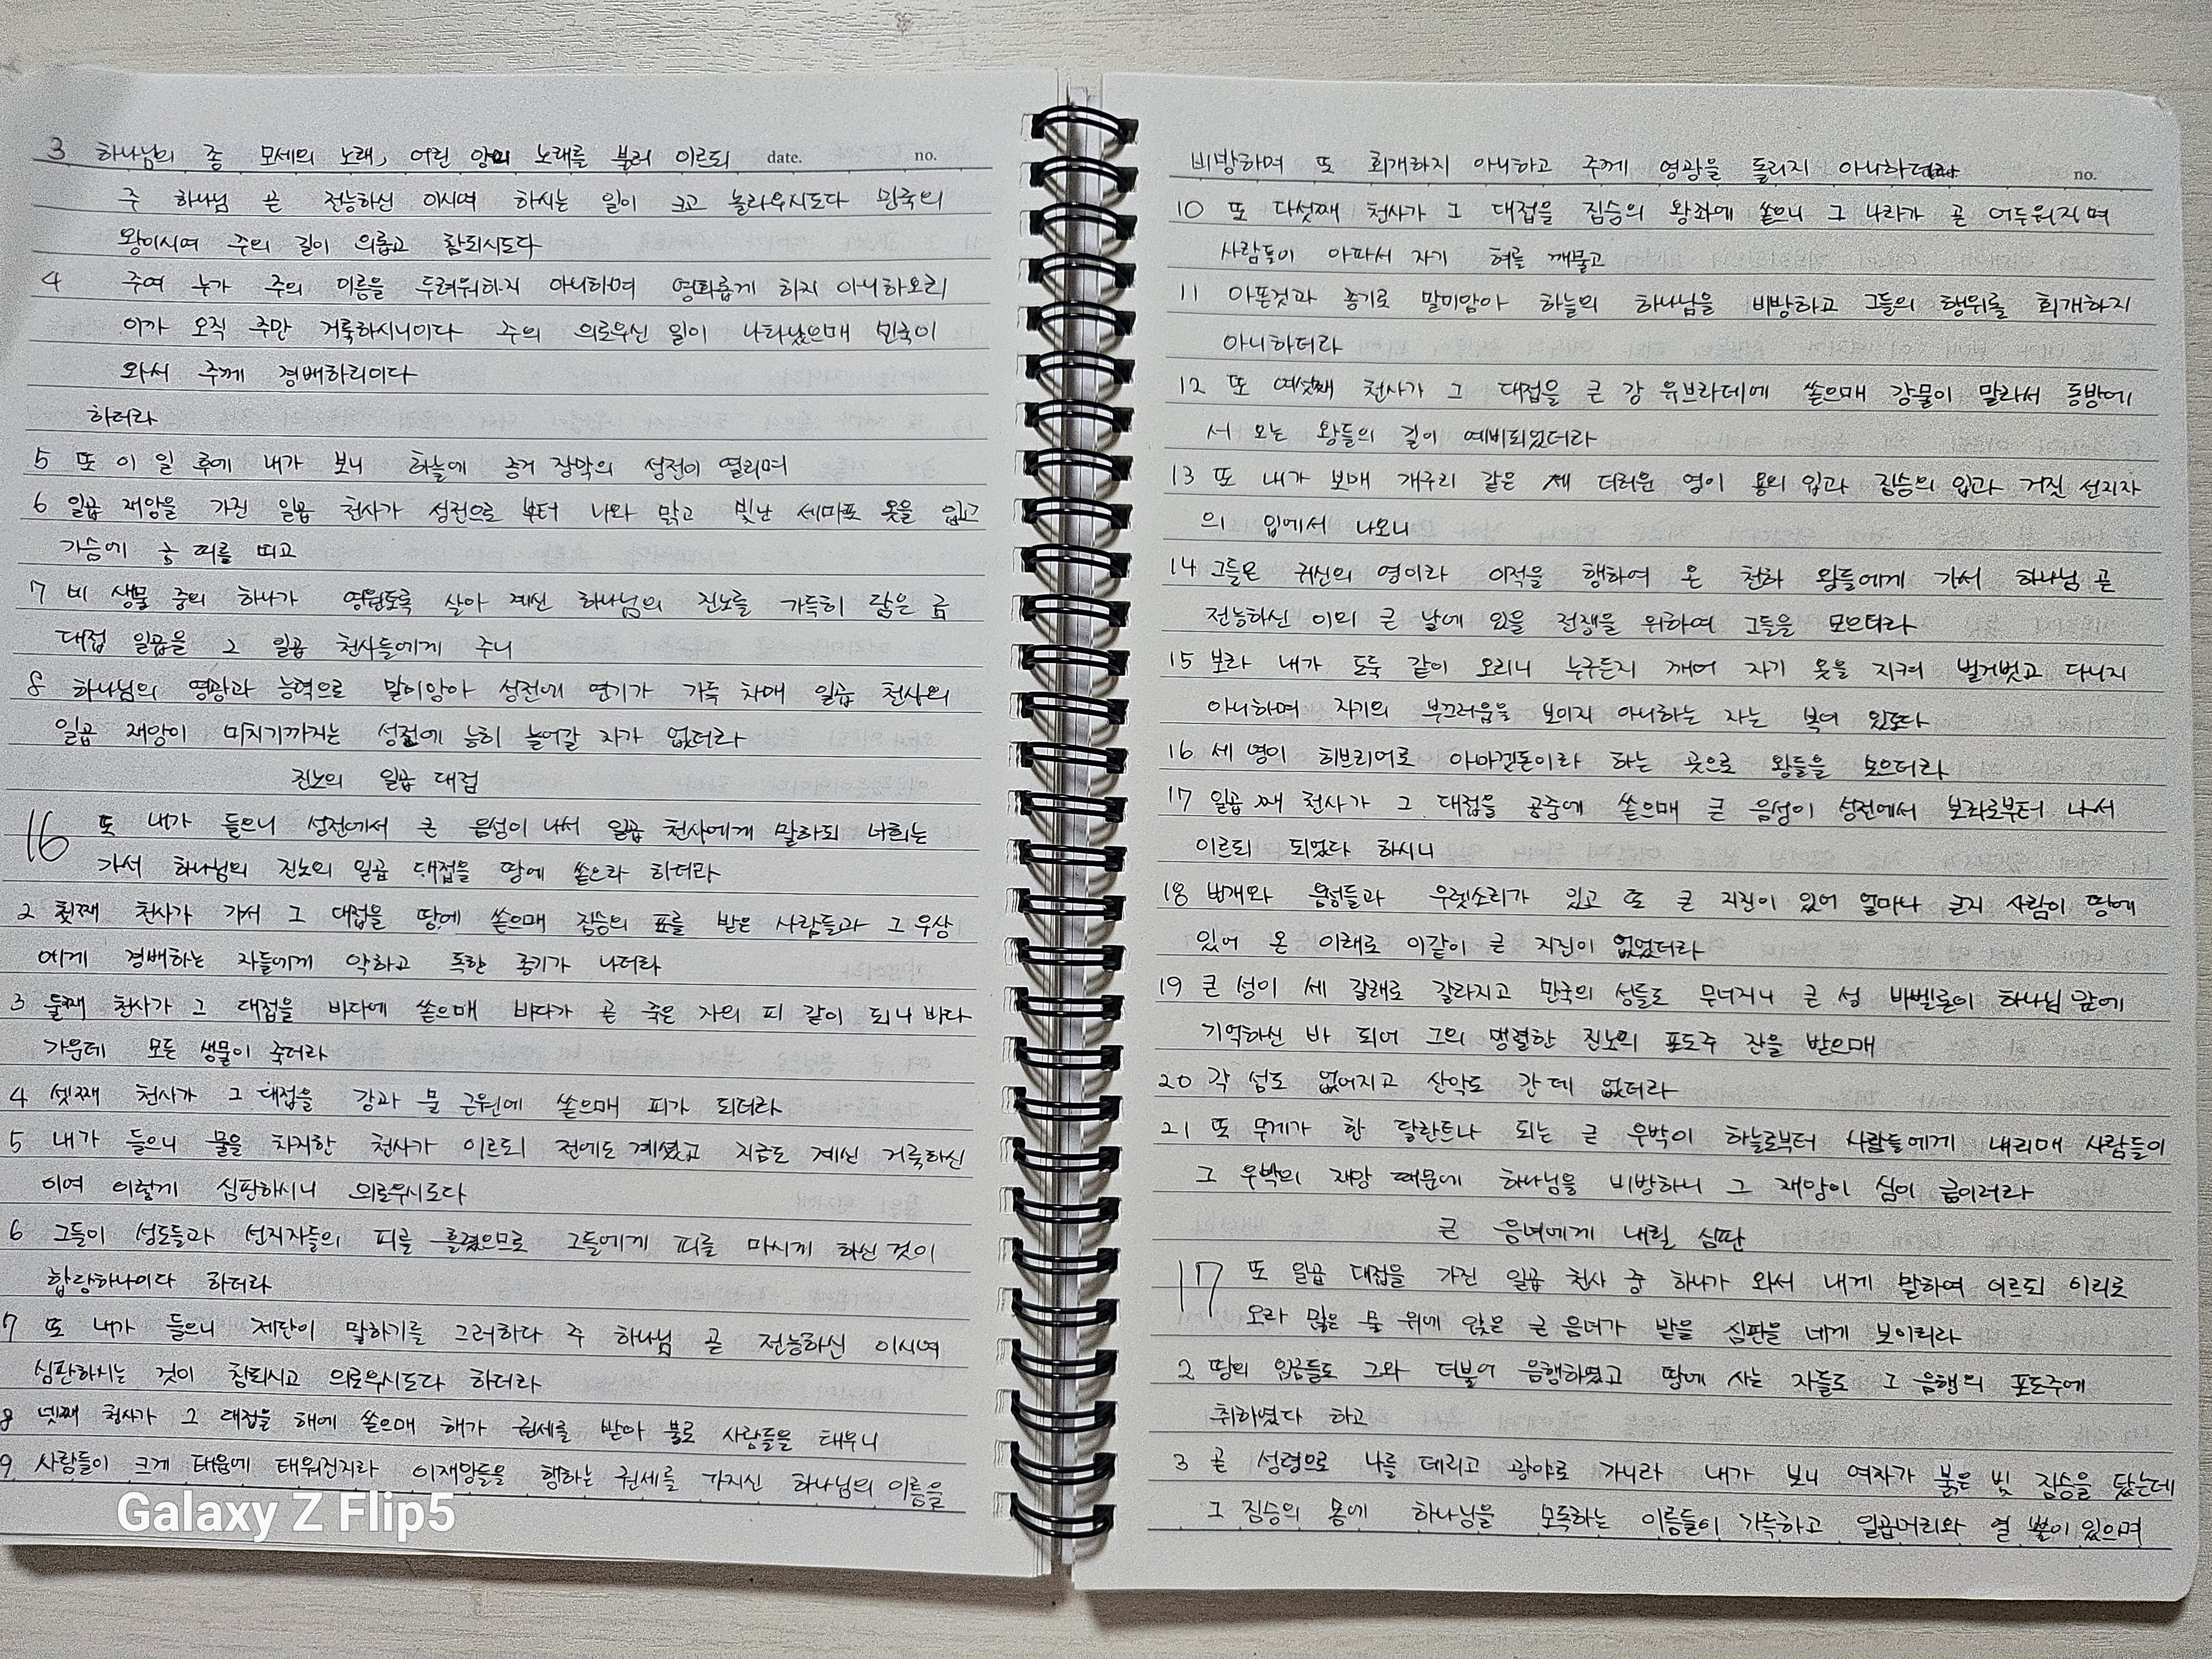 3 하나님의 종 모세의 노래, 어린 양의 노래를 불러 이르되 date. no.
주 하나님 곧 전능하신 이시여 하시는 일이 크고 놀라우시도다 만국의
왕이시여 주의 길이 의롭고 참되시도다
4 주여 누가 주의 이름을 두려워하지 아니하며 영화롭게 하지 아니하오리
이까 오직 주만 거룩하시니이다 주의 의로우신 일이 나타났으매 만국이
와서 주께 경배하리이다
하더라
5 또 이 일 후에 내가 보니 하늘에 증거 장막의 성전이 열리며
6 일곱 재앙을 가진 일곱 천사가 성전으로 부터 나와 맑고 빛난 세마포 옷을 입고
가슴에 금 띠를 띠고
7 네 생물 중의 하나가 영원토록 살아 계신 하나님의 진노를 가득히 담은 금
대접 일곱을 그 일곱 천사들에게 주니
8 하나님의 영광과 능력으로 말미암아 성전에 연기가 가득 차매 일곱 천사의
일곱 재앙이 마치기까지는 성전에 능히 들어갈 자가 없더라
진노의 일곱 대접
16 또 내가 들으니 성전에서 큰 음성이 나서 일곱 천사에게 말하되 너희는
가서 하나님의 진노의 일곱 대접을 땅에 쏟으라 하더라
2 첫째 천사가 가서 그 대접을 땅에 쏟으매 짐승의 표를 받은 사람들과 그 우상
에게 경배하는 자들에게 악하고 독한 종기가 나더라
3 둘째 천사가 그 대접을 바다에 쏟으매 바다가 곧 죽은 자의 피 같이 되니 바다
가운데 모든 생물이 죽더라
4 셋째 천사가 그 대접을 강과 물 근원에 쏟으매 피가 되더라
5 내가 들으니 물을 차지한 천사가 이르되 전에도 계셨고 지금도 계신 거룩하신
이여 이렇게 심판하시니 의로우시도다
6 그들이 성도들과 선지자들의 피를 흘렸으므로 그들에게 피를 마시게 하신 것이
합당하니이다 하더라
7 또 내가 들으니 제단이 말하기를 그러하다 주 하나님 곧 전능하신 이시여
심판하시는 것이 참되시고 의로우시도다 하더라
8 넷째 천사가 그 대접을 해에 쏟으매 해가 권세를 받아 불로 사람들을 태우니
9 사람들이 크게 태움에 태워진지라 이재앙들을 행하는 권세를 가지신 하나님의 이름을
비방하며 또 회개하지 아니하고 주께 영광을 돌리지 아니하더라 no.
10 또 다섯째 천사가 그 대접을 짐승의 왕좌에 쏟으니 그 나라가 곧 어두워지며
사람들이 아파서 자기 혀를 깨물고
11 아픈것과 종기로 말미암아 하늘의 하나님을 비방하고 그들의 행위를 회개하지
아니하더라
12 또 여섯째 천사가 그 대접을 큰 강 유브라데에 쏟으매 강물이 말라서 동방에
서 오는 왕들의 길이 예비되었더라
13 또 내가 보매 개구리 같은 세 더러운 영이 용의 입과 짐승의 입과 거짓 선지자
의 입에서 나오니
14 그들은 귀신의 영이라 이적을 행하여 온 천하 왕들에게 가서 하나님 곧
전능하신 이의 큰 날에 있을 전쟁을 위하여 그들을 모으더라
15 보라 내가 도둑 같이 오리니 누구든지 깨어 자기 옷을 지켜 벌거벗고 다니지
아니하며 자기의 부끄러움을 보이지 아니하는 자는 복이 있도다
16 세 영이 히브리어로 아마겟돈이라 하는 곳으로 왕들을 모으더라
17 일곱 째 천사가 그 대접을 공중에 쏟으매 큰 음성이 성전에서 보좌로부터 나서
이르되 되었다 하시니
18 번개와 음성들과 우렛소리가 있고 또 큰 지진이 있어 얼마나 큰지 사람이 땅에
있어 온 이래로 이같이 큰 지진이 없었더라
19 큰 성이 세 갈래로 갈라지고 만국의 성들도 무너지니 큰 성 바벨론이 하나님 앞에
기억하신 바 되어 그의 맹렬한 진노의 포도주 잔을 받으매
20 각 섬도 없어지고 산악도 간 데 없더라
21 또 무게가 한 달란트나 되는 큰 우박이 하늘로부터 사람들에게 내리매 사람들이
그 우박의 재앙 때문에 하나님을 비방하니 그 재앙이 심히 큼이러라
큰 음녀에게 내릴 심판
17 또 일곱 대접을 가진 일곱 천사 중 하나가 와서 내게 말하여 이르되 이리로
오라 많은 물 위에 앉은 큰 음녀가 받을 심판을 네게 보이리라
2 땅의 임금들도 그와 더불어 음행하였고 땅에 사는 자들도 그 음행의 포도주에
취하였다 하고
3 곧 성령으로 나를 데리고 광야로 가니라 내가 보니 여자가 붉은 빛 짐승을 탔는데
그 짐승의 몸에 하나님을 모독하는 이름들이 가득하고 일곱머리와 열 뿔이 있으며
Galaxy Z Flip5